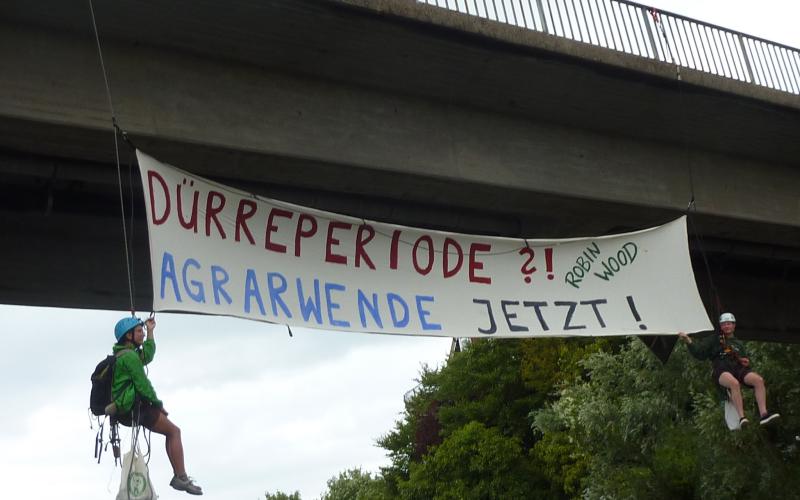 DÜRREPERIODE ?!
ROBIN
WOOD
AGRARWENDE JETZT !